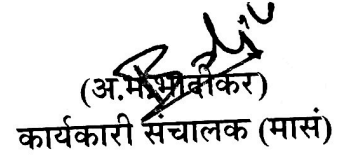 (अ.म.भादीकर)
कार्यकारी संचालक (मासं)